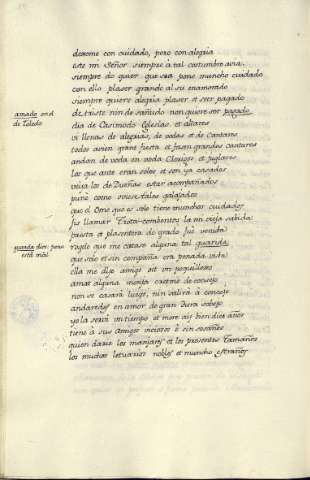 dexome con cuidado, pero con alegria
este mi Señor siempre à tal costumbre avia.
siempre do quier que sea pone muncho cuidado
con ello plaser grande al su enamorado
siempre quiere alegria plaser et ser pagado
de triste nin de sañudo non quiere ser pagado
dia de Casimodo Iglesias et altares
vi llenas de alegrias, de vodas et de Cantares
todos avien grant fiesta et fasen grandes cantares
andan de voda en voda Clerigos et juglares
los que ante eran solos et son ya casados
veia los de Dueñas estar acompañados
puse como oviese tales gasajados
que el Ome que es solo tiene munchos cuidados
fis llamar Trota-conbentos la mi vieja sabida
presta et plasentera de grado fue venida
rogle que me catase alguna tal guarida
que solo et sin compaña era penada vida
ella me dijo amigo oit un poquillejo
amat alguna monja creedme de consejo
non se casará luego, nin saldrá à concejo
andaredes en amor de grant dura sobejo
yo la serví un tiempo et more ay bien diez años
tiene à sus amigos viciosos è sin sosaños
quien darie los manjares et los presentes Tamaños
los muchos letuarios nobles et muncho estraños
amado en el
de Toledo
guarida dice pero
está mal